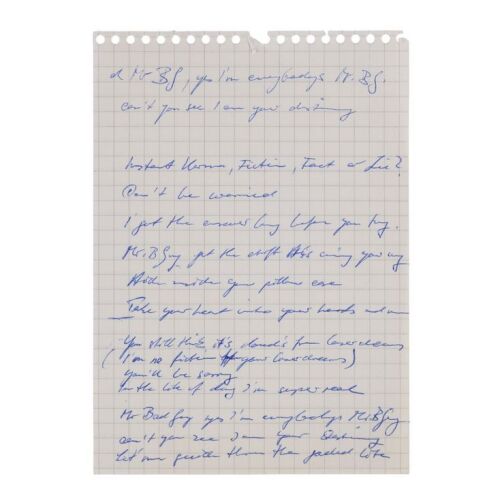 Mr BG, yes I'm everybodys Mr. BG.
can't you see I am your destiny
Instant Karma, Fiction, Fact or Lie?
Don't be worried
I got the answer long before you try.
Mr. BGuy got the stuff coming your way
Hide inside your pillow case
Take your heart into your hands
You still think it's clouds from
(I'm no fiction your)
You'll be sorry
In the of day I'm super real
Mr Bad Guy yes I'm everybodys Mr. BGuy
can't you see I am your Destiny
Let me guide them the